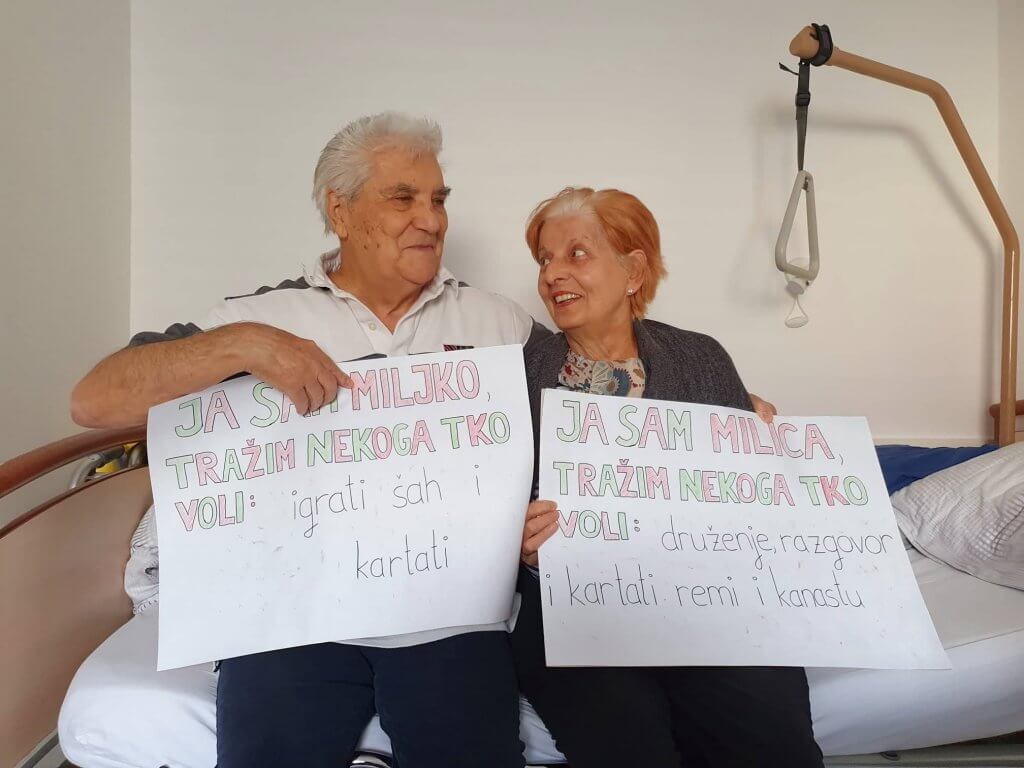 JA SAM MILJKO,
TRAŽIM NEKOGA TKO
VOLI: igrati šah i
kartati
JA SAM MILICA,
TRAŽIM NEKOGA TKO
VOLI: druženje, razgovor
i kartati remi i kanastu